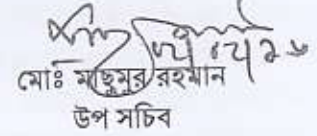 মোঃ মাছুমুর রহমান
উপ সচিব